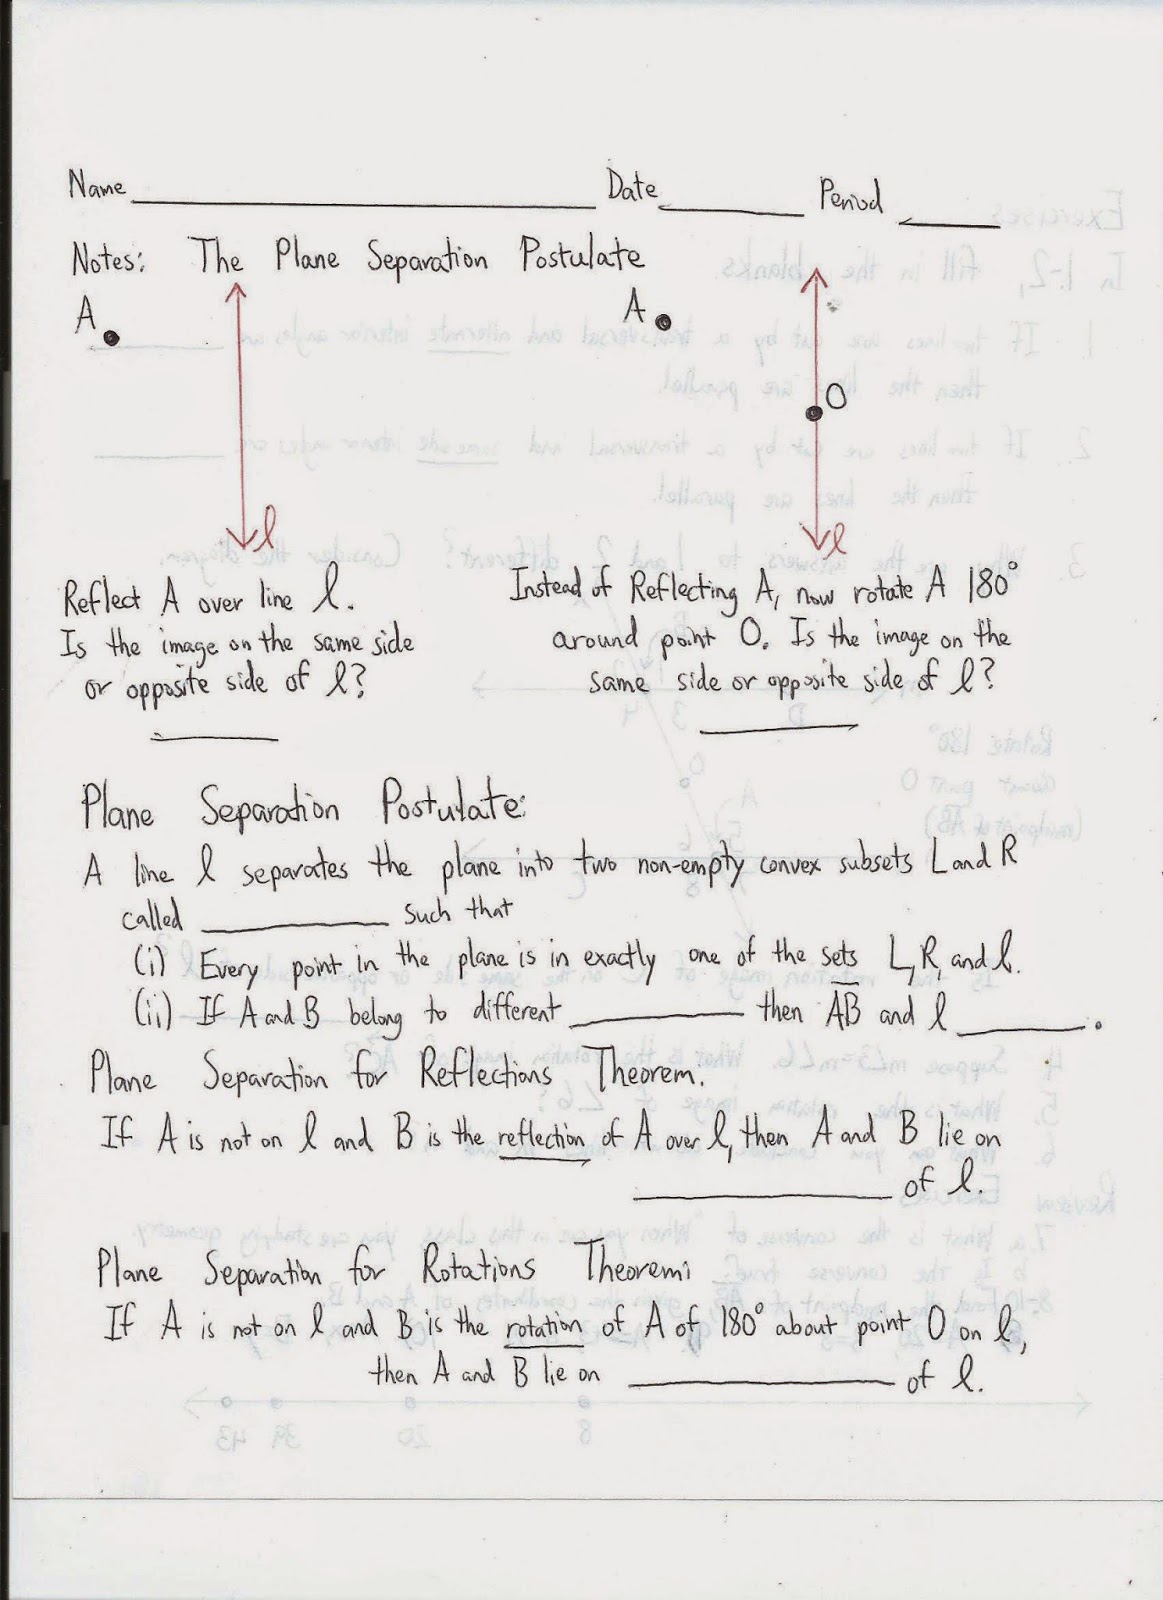 Name ____________ Date ________ Period ________
Notes: The Plane Separation Postulate
A A
O
l l
Reflect A over line l.
Is the image on the same side
or opposite side of l?
Instead of Reflecting A, now rotate A 180°
around point O. Is the image on the
same side or opposite side of l?
Plane Separation Postulate:
A line l separates the plane into two non-empty convex subsets L and R
called ____________ such that
(i) Every point in the plane is in exactly one of the sets L, R, and l.
(ii) If A and B belong to different ____________ then AB and l ________.
Plane Separation for Reflections Theorem:
If A is not on l and B is the reflection of A over l, then A and B lie on
____________ of l.
Plane Separation for Rotations Theorem:
If A is not on l and B is the rotation of A of 180° about point O on l,
then A and B lie on ____________ of l.